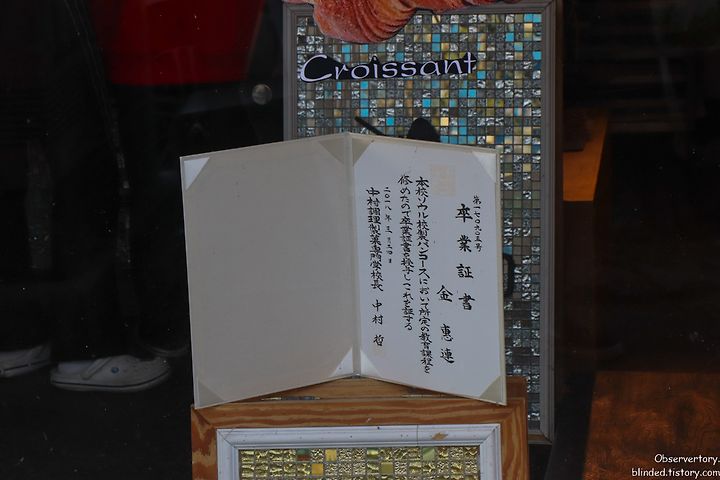 Croissant
第一七〇九〇三号
卒業証書
金惠連
本校ソウル校製パンコースにおいて所定の教育課程を
修めたので卒業証書を授与しこれを証する
中村調理製菓専門学校長 中村 哲
Observertory.
blinded.tistory.com